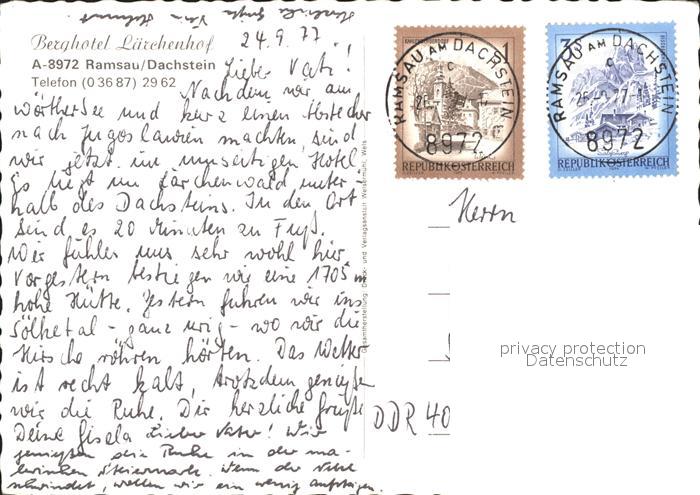 Herzliche Grüße Von Helmut
Berghotel Lärchenhof
24.9.77
A-8972 Ramsau/Dachstein
Telefon (0 36 87) 29 62
Lieber Vati!
Nachdem wir am
Wörthersee und kurz einen Abstecher
nach Jugoslawien machten, sind
wir jetzt im umseitigen Hotel
Es liegt im Lärchenwald unter-
halb des Dachsteins. In den Ort
sind es 20 Minuten zu Fuß.
Wir fühlen uns sehr wohl hier.
Vorgestern bestiegen wir eine 1705 m
hohe Hütte. Gestern fuhren wir ins
Sölketal - ganz urig - wo wir die
Hirsche röhren hörten. Das Wetter
ist recht kalt, trotzdem genießen
wir die Ruhe. Dir herzliche Grüße
Deine Gisela Lieber Vater! Wir
genießen die Ruhe in der ma-
lerischen Steiermark. Wenn der Nebel
schwindet, wollen wir ein wenig aufsteigen.
RAMSAU AM DACHSTEIN
8972
1
REPUBLIK ÖSTERREICH
RAMSAU AM DACHSTEIN
8972
3
REPUBLIK ÖSTERREICH
Herrn
privacy protection
Datenschutz
DDR 40